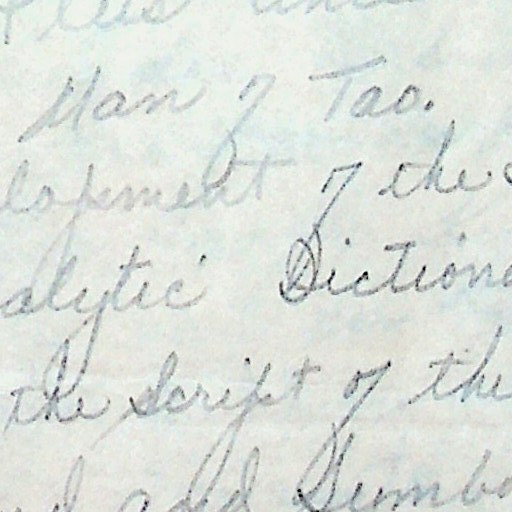 Man of Tao.
lopment of the
alytic Dictiona
the Script of the
and Symbo